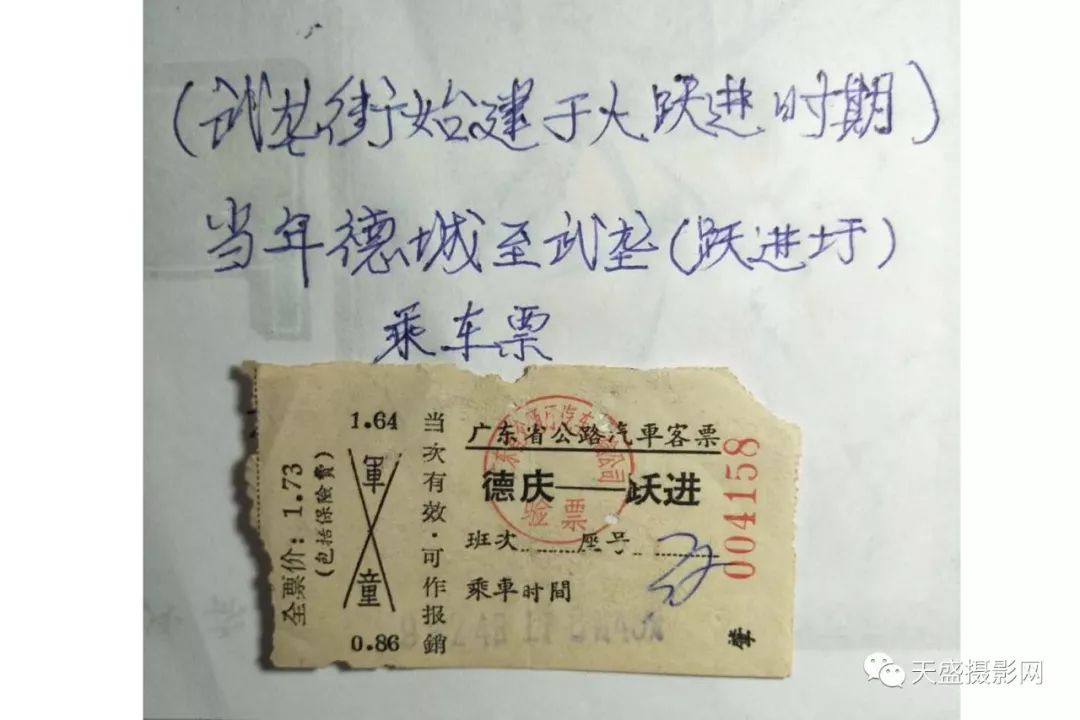 (武垄街始建于大跃进时期)
当年德城至武垄(跃进圩)
乘车票
全票价:1.73
(包括保險費)
1.64
軍
童
0.86
当次有效·可作报銷
广东省公路汽車客票
德庆——跃进
验票
班次 座号
乘車时間
004158
肇
天盛摄影网